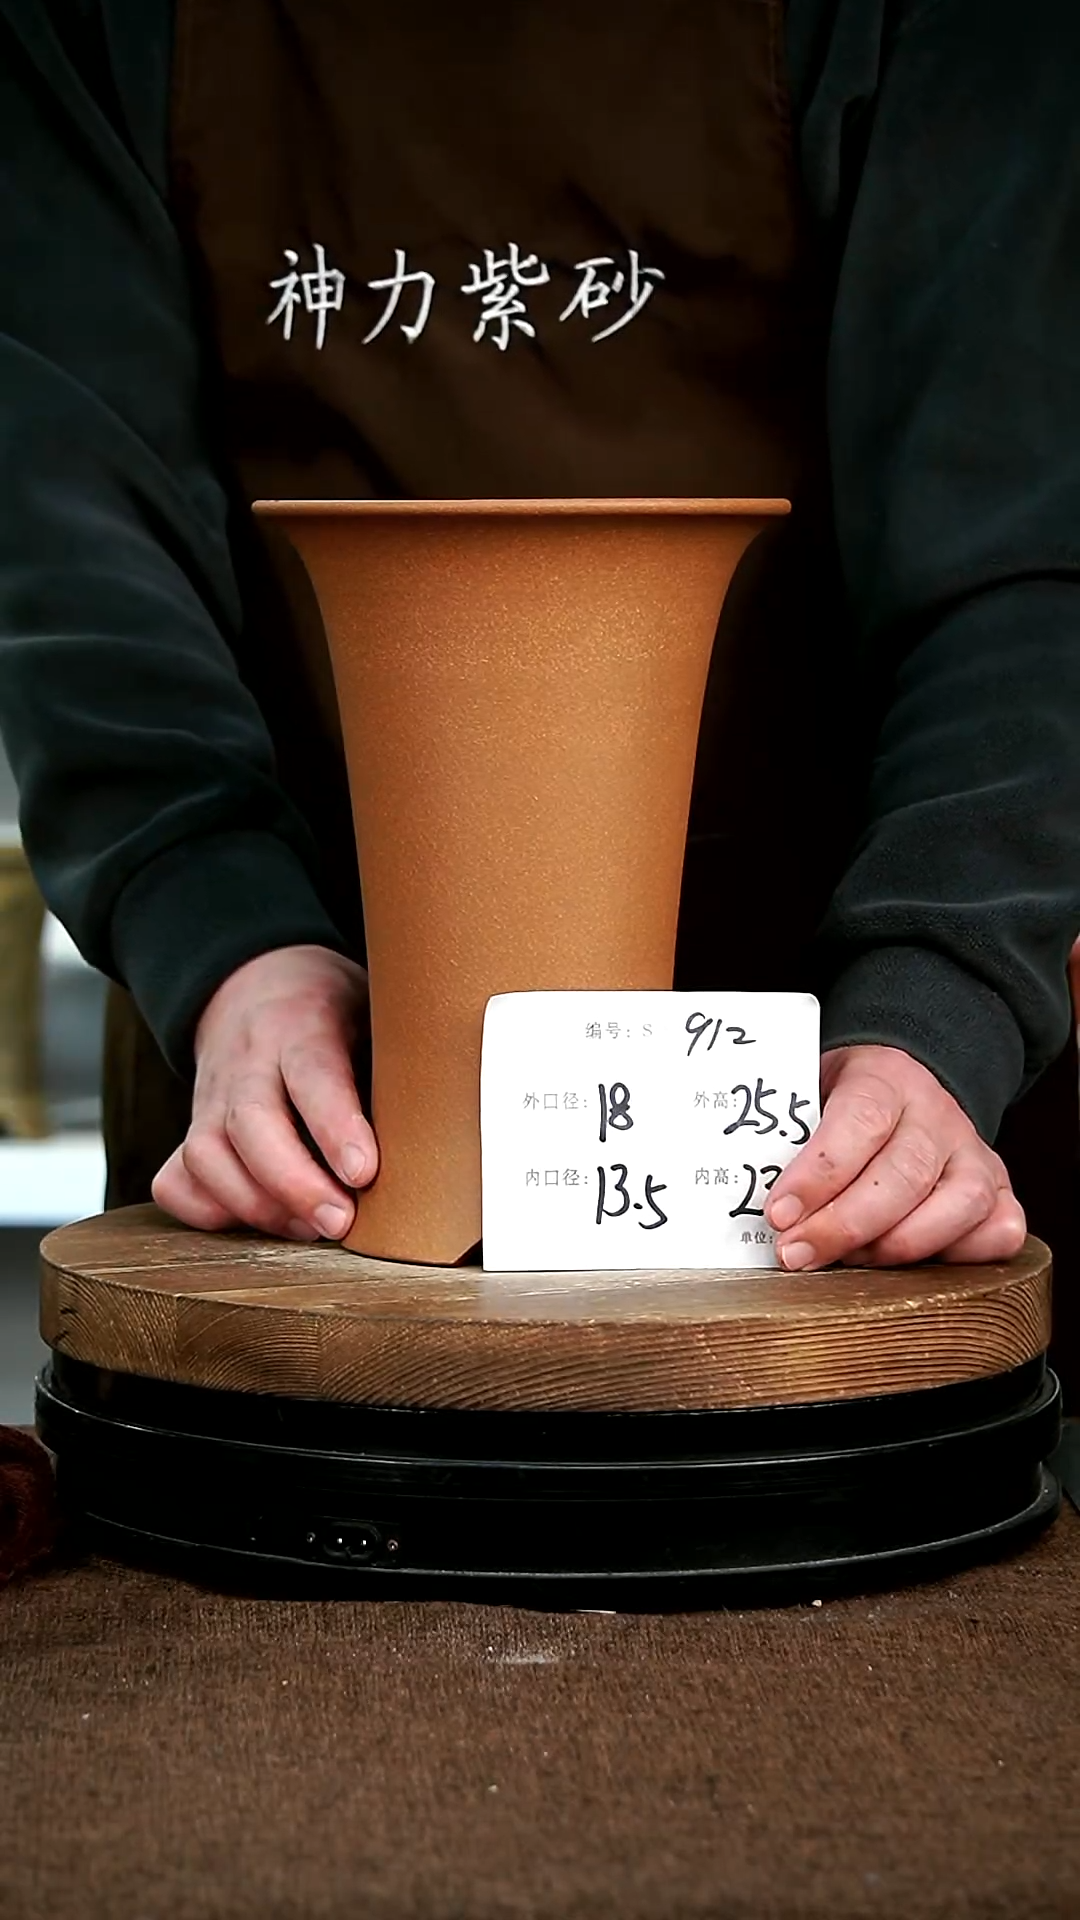 神力紫砂
编号: S 912
外口径: 18 外高: 25.5
内口径: 13.5 内高: 23
单位: